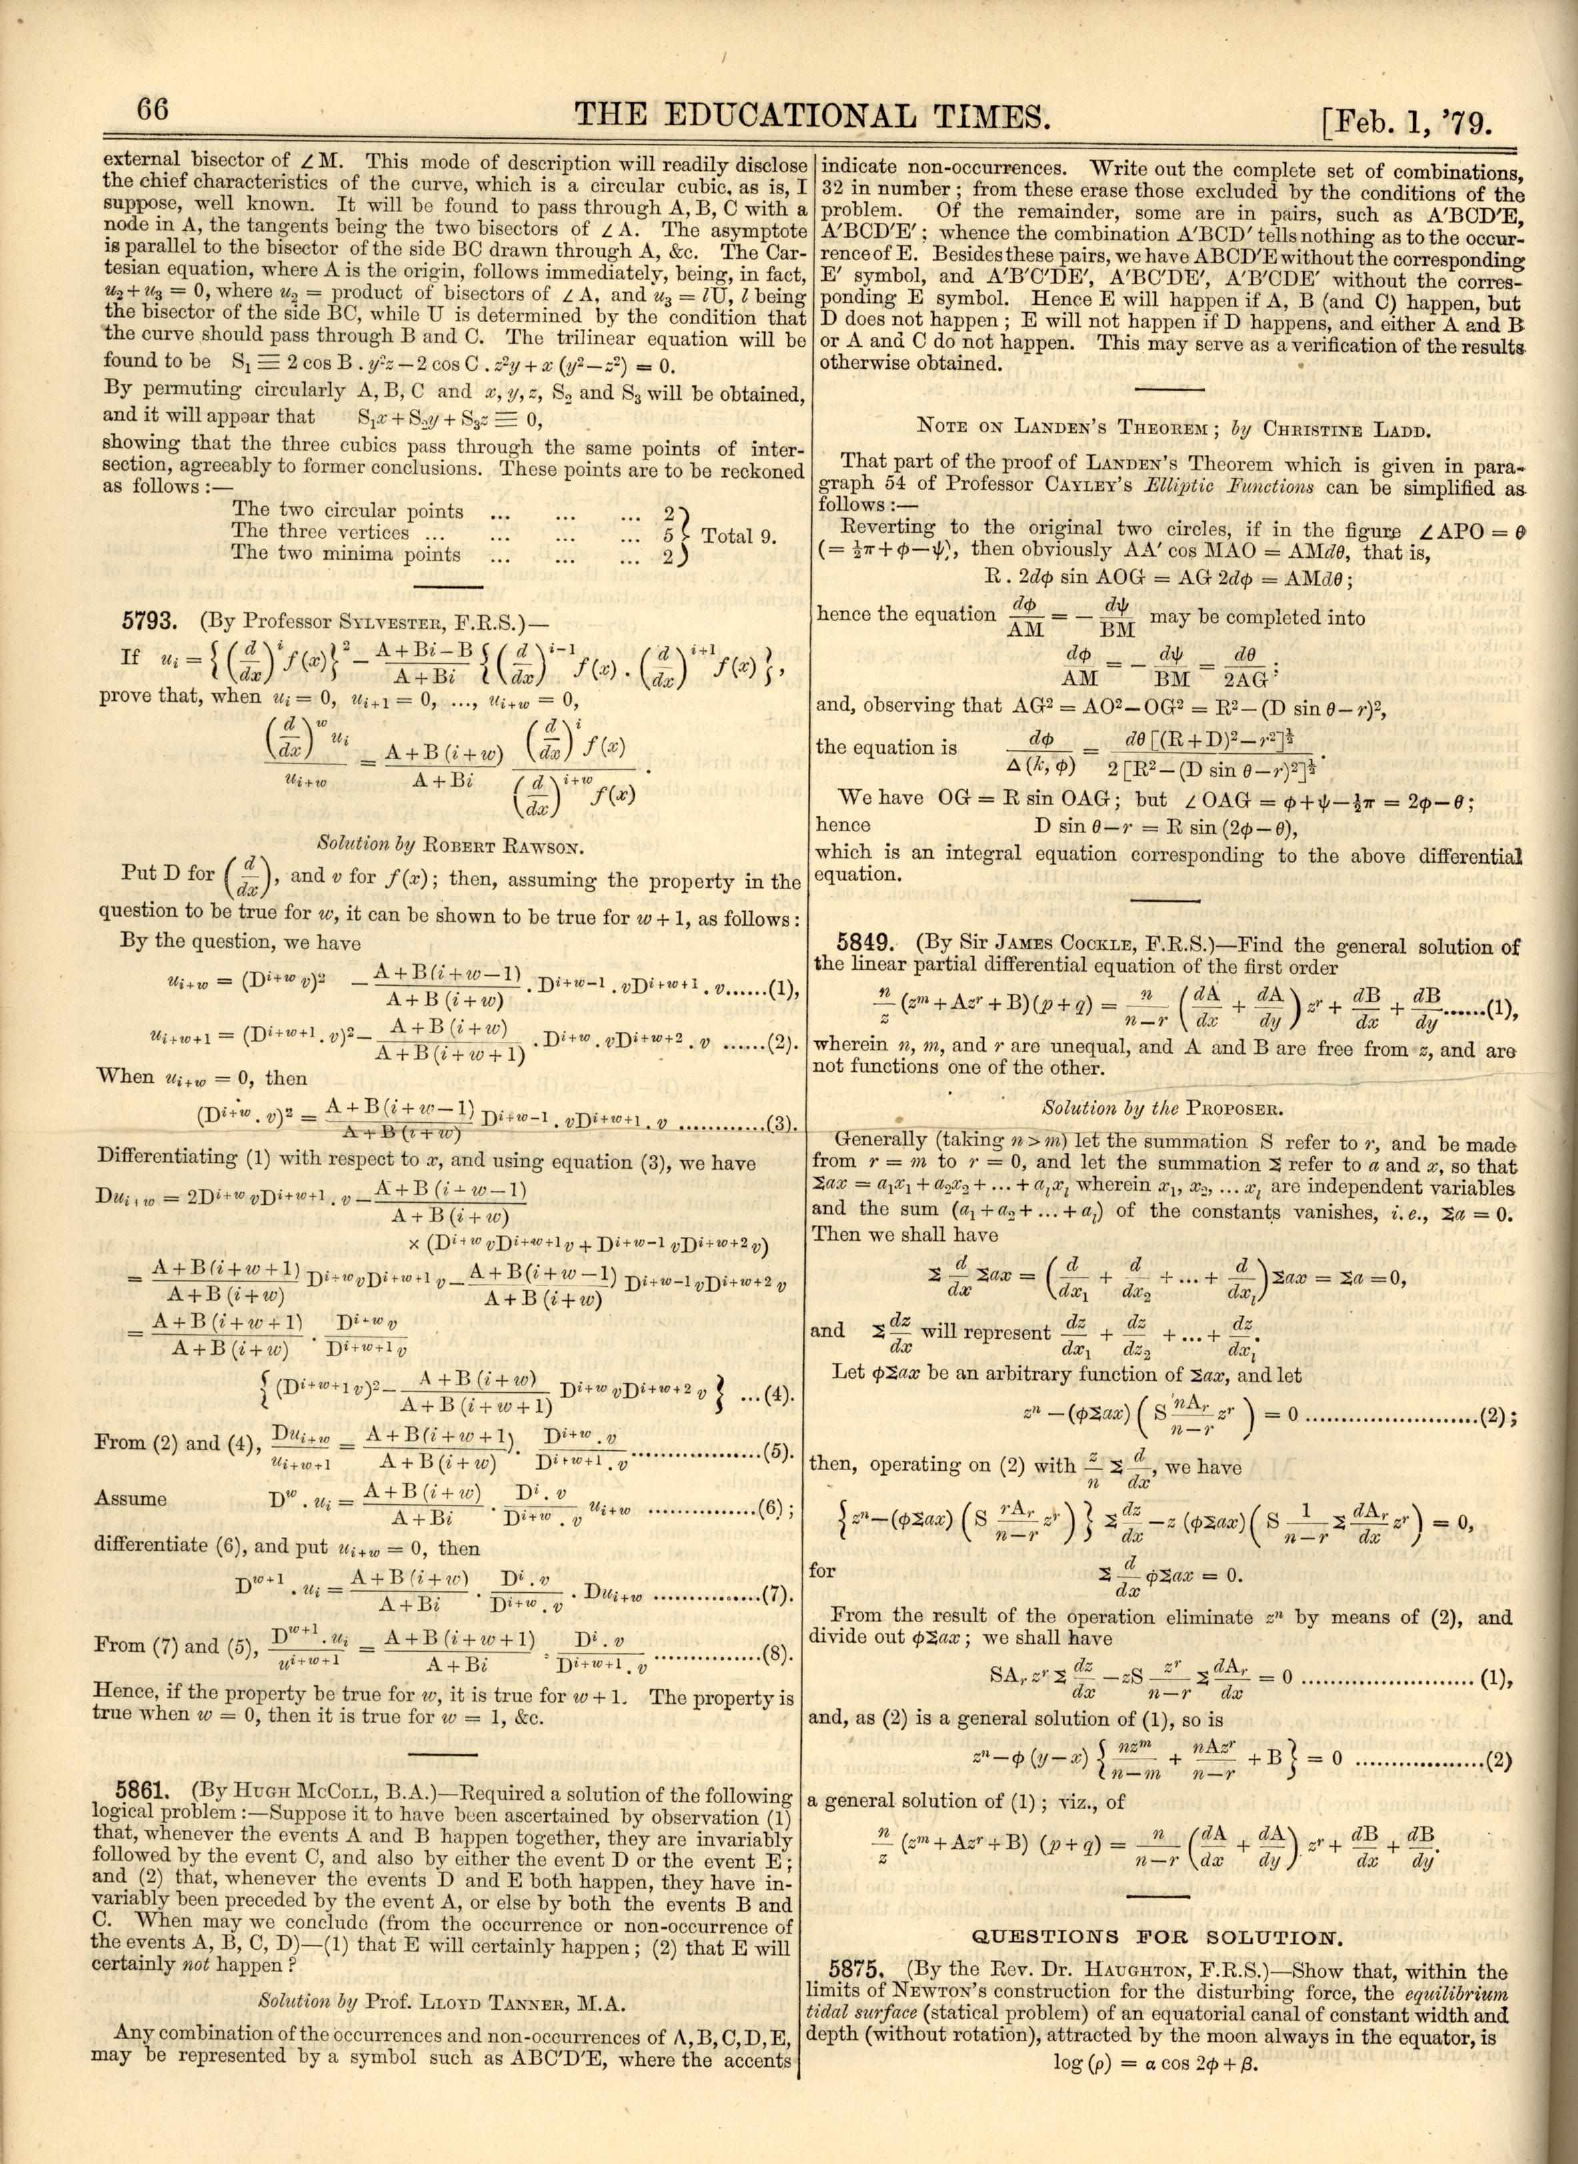 66
THE EDUCATIONAL TIMES.
[Feb. 1, '79.
external bisector of ∠M. This mode of description will readily disclose
the chief characteristics of the curve, which is a circular cubic, as is, I
suppose, well known. It will be found to pass through A, B, C with a
node in A, the tangents being the two bisectors of ∠A. The asymptote
is parallel to the bisector of the side BC drawn through A, &c. The Car-
tesian equation, where A is the origin, follows immediately, being, in fact,
u₂ + u₃ = 0, where u₂ = product of bisectors of ∠A, and u₃ = lU, l being
the bisector of the side BC, while U is determined by the condition that
the curve should pass through B and C. The trilinear equation will be
found to be S₁ ≡ 2 cos B . y²z − 2 cos C . z²y + x (y² − z²) = 0.
By permuting circularly A, B, C and x, y, z, S₂ and S₃ will be obtained,
and it will appear that S₁x + S₂y + S₃z ≡ 0,
showing that the three cubics pass through the same points of inter-
section, agreeably to former conclusions. These points are to be reckoned
as follows :—
The two circular points ... ... ... 2
The three vertices ... ... ... 5 } Total 9.
The two minima points ... ... ... 2
5793. (By Professor SYLVESTER, F.R.S.)—
If uᵢ = {(d/dx)^i f(x)}² − (A + Bi − B)/(A + Bi) {(d/dx)^(i−1) f(x) . (d/dx)^(i+1) f(x)},
prove that, when u_i = 0, u_(i+1) = 0, ..., u_(i+w) = 0,
(d/dx)^w u_i / u_(i+w) = (A + B (i + w))/(A + Bi) (d/dx)^i f(x) / (d/dx)^(i+w) f(x) .
Solution by ROBERT RAWSON.
Put D for (d/dx), and v for f(x); then, assuming the property in the
question to be true for w, it can be shown to be true for w + 1, as follows :
By the question, we have
u_(i+w) = (D^(i+w) v)² − (A + B(i + w − 1))/(A + B (i + w)) . D^(i+w−1) . vD^(i+w+1) . v......(1),
u_(i+w+1) = (D^(i+w+1) . v)² − (A + B (i + w))/(A + B (i + w + 1)) . D^(i+w) . vD^(i+w+2) . v ......(2).
When u_(i+w) = 0, then
(D^(i+w) . v)² = (A + B(i + w − 1))/(A + B (i + w)) D^(i+w−1) . vD^(i+w+1) . v ............(3).
Differentiating (1) with respect to x, and using equation (3), we have
Du_(i+w) = 2D^(i+w) vD^(i+w+1) . v − (A + B (i + w − 1))/(A + B (i + w))
× (D^(i+w) vD^(i+w+1) v + D^(i+w−1) vD^(i+w+2) v)
= (A + B(i + w + 1))/(A + B (i + w)) D^(i+w) vD^(i+w+1) v − (A + B(i + w − 1))/(A + B (i + w)) D^(i+w−1) vD^(i+w+2) v
= (A + B (i + w + 1))/(A + B (i + w)) . D^(i+w) v / D^(i+w+1) v
{(D^(i+w+1) v)² − (A + B (i + w))/(A + B (i + w + 1)) D^(i+w) vD^(i+w+2) v} ...(4).
From (2) and (4), Du_(i+w)/u_(i+w+1) = (A + B(i + w + 1))/(A + B (i + w)) . D^(i+w) . v / D^(i+w+1) . v ..................(5).
Assume D^w . u_i = (A + B (i + w))/(A + Bi) . D^i . v / D^(i+w) . v u_(i+w) ...............(6);
differentiate (6), and put u_(i+w) = 0, then
D^(w+1) . u_i = (A + B (i + w))/(A + Bi) . D^i . v / D^(i+w) . v . Du_(i+w) ...............(7).
From (7) and (5), D^(w+1) . u_i / u^(i+w+1) = (A + B (i + w + 1))/(A + Bi) . D^i . v / D^(i+w+1) . v ...............(8).
Hence, if the property be true for w, it is true for w + 1. The property is
true when w = 0, then it is true for w = 1, &c.
5861. (By HUGH MCCOLL, B.A.)—Required a solution of the following
logical problem :—Suppose it to have been ascertained by observation (1)
that, whenever the events A and B happen together, they are invariably
followed by the event C, and also by either the event D or the event E ;
and (2) that, whenever the events D and E both happen, they have in-
variably been preceded by the event A, or else by both the events B and
C. When may we conclude (from the occurrence or non-occurrence of
the events A, B, C, D)—(1) that E will certainly happen ; (2) that E will
certainly not happen ?
Solution by Prof. LLOYD TANNER, M.A.
Any combination of the occurrences and non-occurrences of A, B, C, D, E,
may be represented by a symbol such as ABC'D'E, where the accents
indicate non-occurrences. Write out the complete set of combinations,
32 in number ; from these erase those excluded by the conditions of the
problem. Of the remainder, some are in pairs, such as A'BCD'E,
A'BCD'E' ; whence the combination A'BCD' tells nothing as to the occur-
rence of E. Besides these pairs, we have ABCD'E without the corresponding
E' symbol, and A'B'C'DE', A'BC'DE', A'B'CDE' without the corres-
ponding E symbol. Hence E will happen if A, B (and C) happen, but
D does not happen ; E will not happen if D happens, and either A and B
or A and C do not happen. This may serve as a verification of the results
otherwise obtained.
NOTE ON LANDEN'S THEOREM ; by CHRISTINE LADD.
That part of the proof of LANDEN'S Theorem which is given in para-
graph 54 of Professor CAYLEY'S Elliptic Functions can be simplified as
follows :—
Reverting to the original two circles, if in the figure ∠APO = θ
(= ½π + φ − ψ), then obviously AA' cos MAO = AMdθ, that is,
R . 2dφ sin AOG = AG 2dφ = AMdθ ;
hence the equation dφ/AM = − dψ/BM may be completed into
dφ/AM = − dψ/BM = dθ/2AG ;
and, observing that AG² = AO² − OG² = R² − (D sin θ − r)²,
the equation is dφ/Δ(k, φ) = dθ [(R + D)² − r²]^½ / 2 [R² − (D sin θ − r)²]^½ .
We have OG = R sin OAG ; but ∠OAG = φ + ψ − ½π = 2φ − θ ;
hence D sin θ − r = R sin (2φ − θ),
which is an integral equation corresponding to the above differential
equation.
5849. (By Sir JAMES COCKLE, F.R.S.)—Find the general solution of
the linear partial differential equation of the first order
n/z (z^m + Az^r + B) (p + q) = n/(n−r) (dA/dx + dA/dy) z^r + dB/dx + dB/dy ......(1),
wherein n, m, and r are unequal, and A and B are free from z, and are
not functions one of the other.
Solution by the PROPOSER.
Generally (taking n > m) let the summation S refer to r, and be made
from r = m to r = 0, and let the summation Σ refer to a and x, so that
Σax = a₁x₁ + a₂x₂ + ... + a_l x_l wherein x₁, x₂, ... x_l are independent variables
and the sum (a₁ + a₂ + ... + a_l) of the constants vanishes, i.e., Σa = 0.
Then we shall have
Σ d/dx Σax = (d/dx₁ + d/dx₂ + ... + d/dx_l) Σax = Σa = 0,
and Σ dz/dx will represent dz/dx₁ + dz/dz₂ + ... + dz/dx_l.
Let φΣax be an arbitrary function of Σax, and let
z^n − (φΣax) (S nA_r/(n−r) z^r) = 0 ........................(2) ;
then, operating on (2) with z/n Σ d/dx, we have
{z^n − (φΣax) (S rA_r/(n−r) z^r)} Σ dz/dx − z (φΣax) (S 1/(n−r) Σ dA_r/dx z^r) = 0,
for Σ d/dx φΣax = 0.
From the result of the operation eliminate z^n by means of (2), and
divide out φΣax ; we shall have
SA_r z^r Σ dz/dx − zS z^r/(n−r) Σ dA_r/dx = 0 ........................ (1),
and, as (2) is a general solution of (1), so is
z^n − φ (y − x) {nz^m/(n−m) + nAz^r/(n−r) + B} = 0 ..................(2)
a general solution of (1) ; viz., of
n/z (z^m + Az^r + B) (p + q) = n/(n−r) (dA/dx + dA/dy) z^r + dB/dx + dB/dy.
QUESTIONS FOR SOLUTION.
5875. (By the Rev. Dr. HAUGHTON, F.R.S.)—Show that, within the
limits of NEWTON'S construction for the disturbing force, the equilibrium
tidal surface (statical problem) of an equatorial canal of constant width and
depth (without rotation), attracted by the moon always in the equator, is
log (ρ) = α cos 2φ + β.